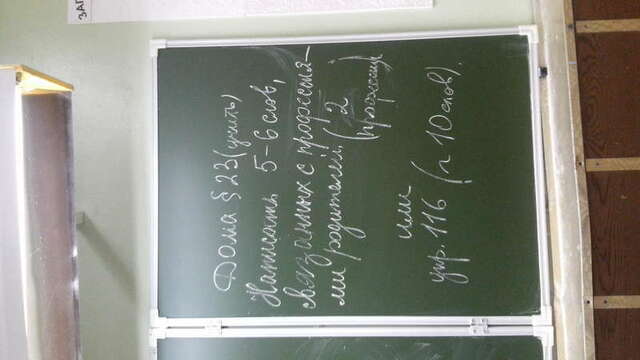 ЗАП
Дома § 23 (учить)
Написать 5-6 слов,
связанных с профессия-
ми родителей. (2
профессии)
или
упр. 116 (~ 10 слов).